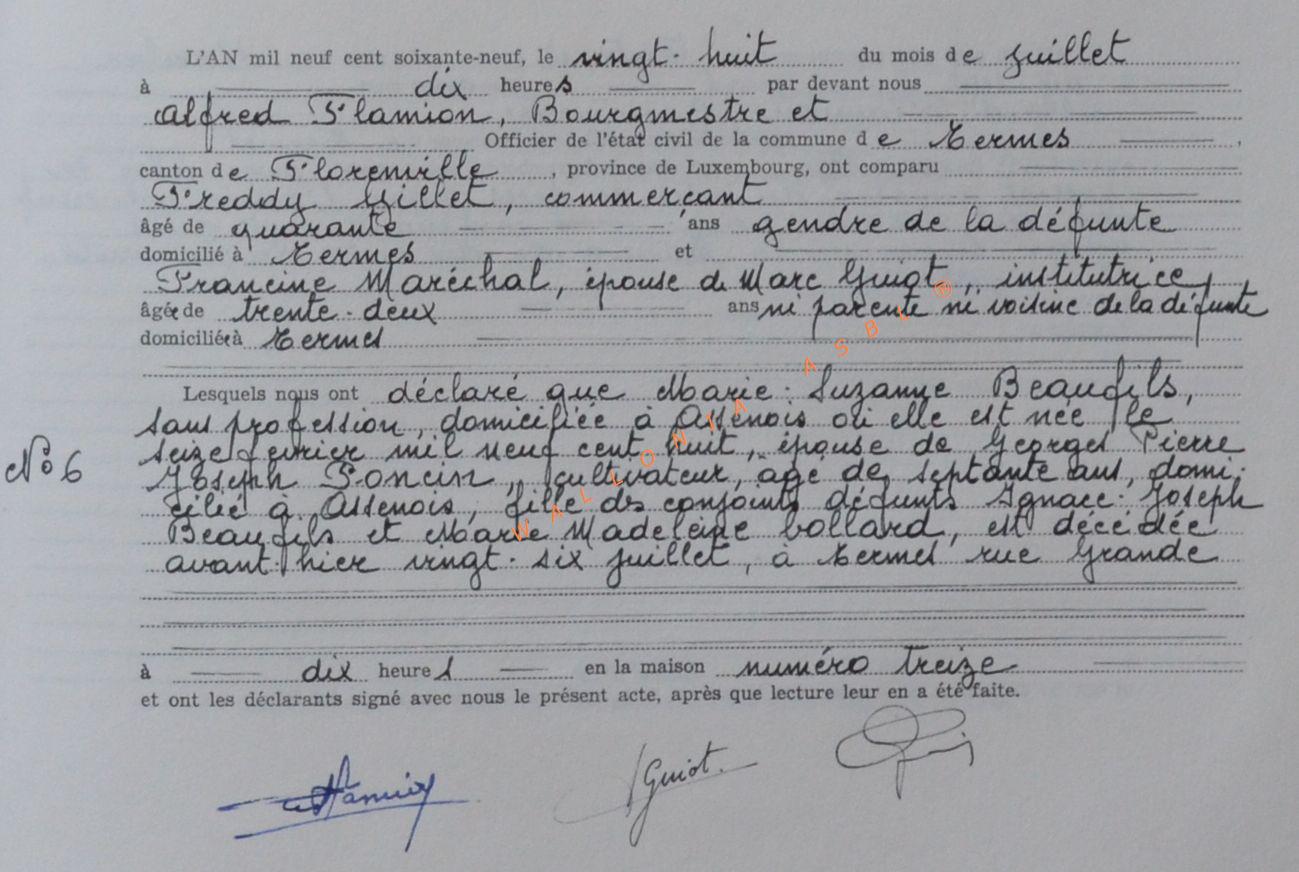 L'AN mil neuf cent soixante-neuf, le vingt-huit du mois de juillet
à dix heures par devant nous
Alfred Flamion, Bourgmestre et
Officier de l'état civil de la commune de Termes,
canton de Florenville, province de Luxembourg, ont comparu
Freddy Gillet, commerçant
âgé de quarante ans gendre de la défunte
domicilié à Termes et
Francine Maréchal, épouse de Marc Guiot, institutrice,
âgée de trente-deux ans ni parente ni voisine de la défunte
domiciliée à Termes
Lesquels nous ont déclaré que Marie-Suzanne Beaufils,
sans profession, domiciliée à Assenois où elle est née le
seize février mil neuf cent huit, épouse de Georges Pierre
Joseph Poncin, cultivateur, âgé de septante ans, domi-
cilié à Assenois, fille des conjoints défunts Ignace-Joseph
Nº 6
Beaufils et Marie Madeleine Collard, est décédée
avant-hier vingt-six juillet, à Termes rue Grande
à dix heures en la maison numéro treize
et ont les déclarants signé avec nous le présent acte, après que lecture leur en a été faite.
Guiot.
WALLONIA ASBL ®